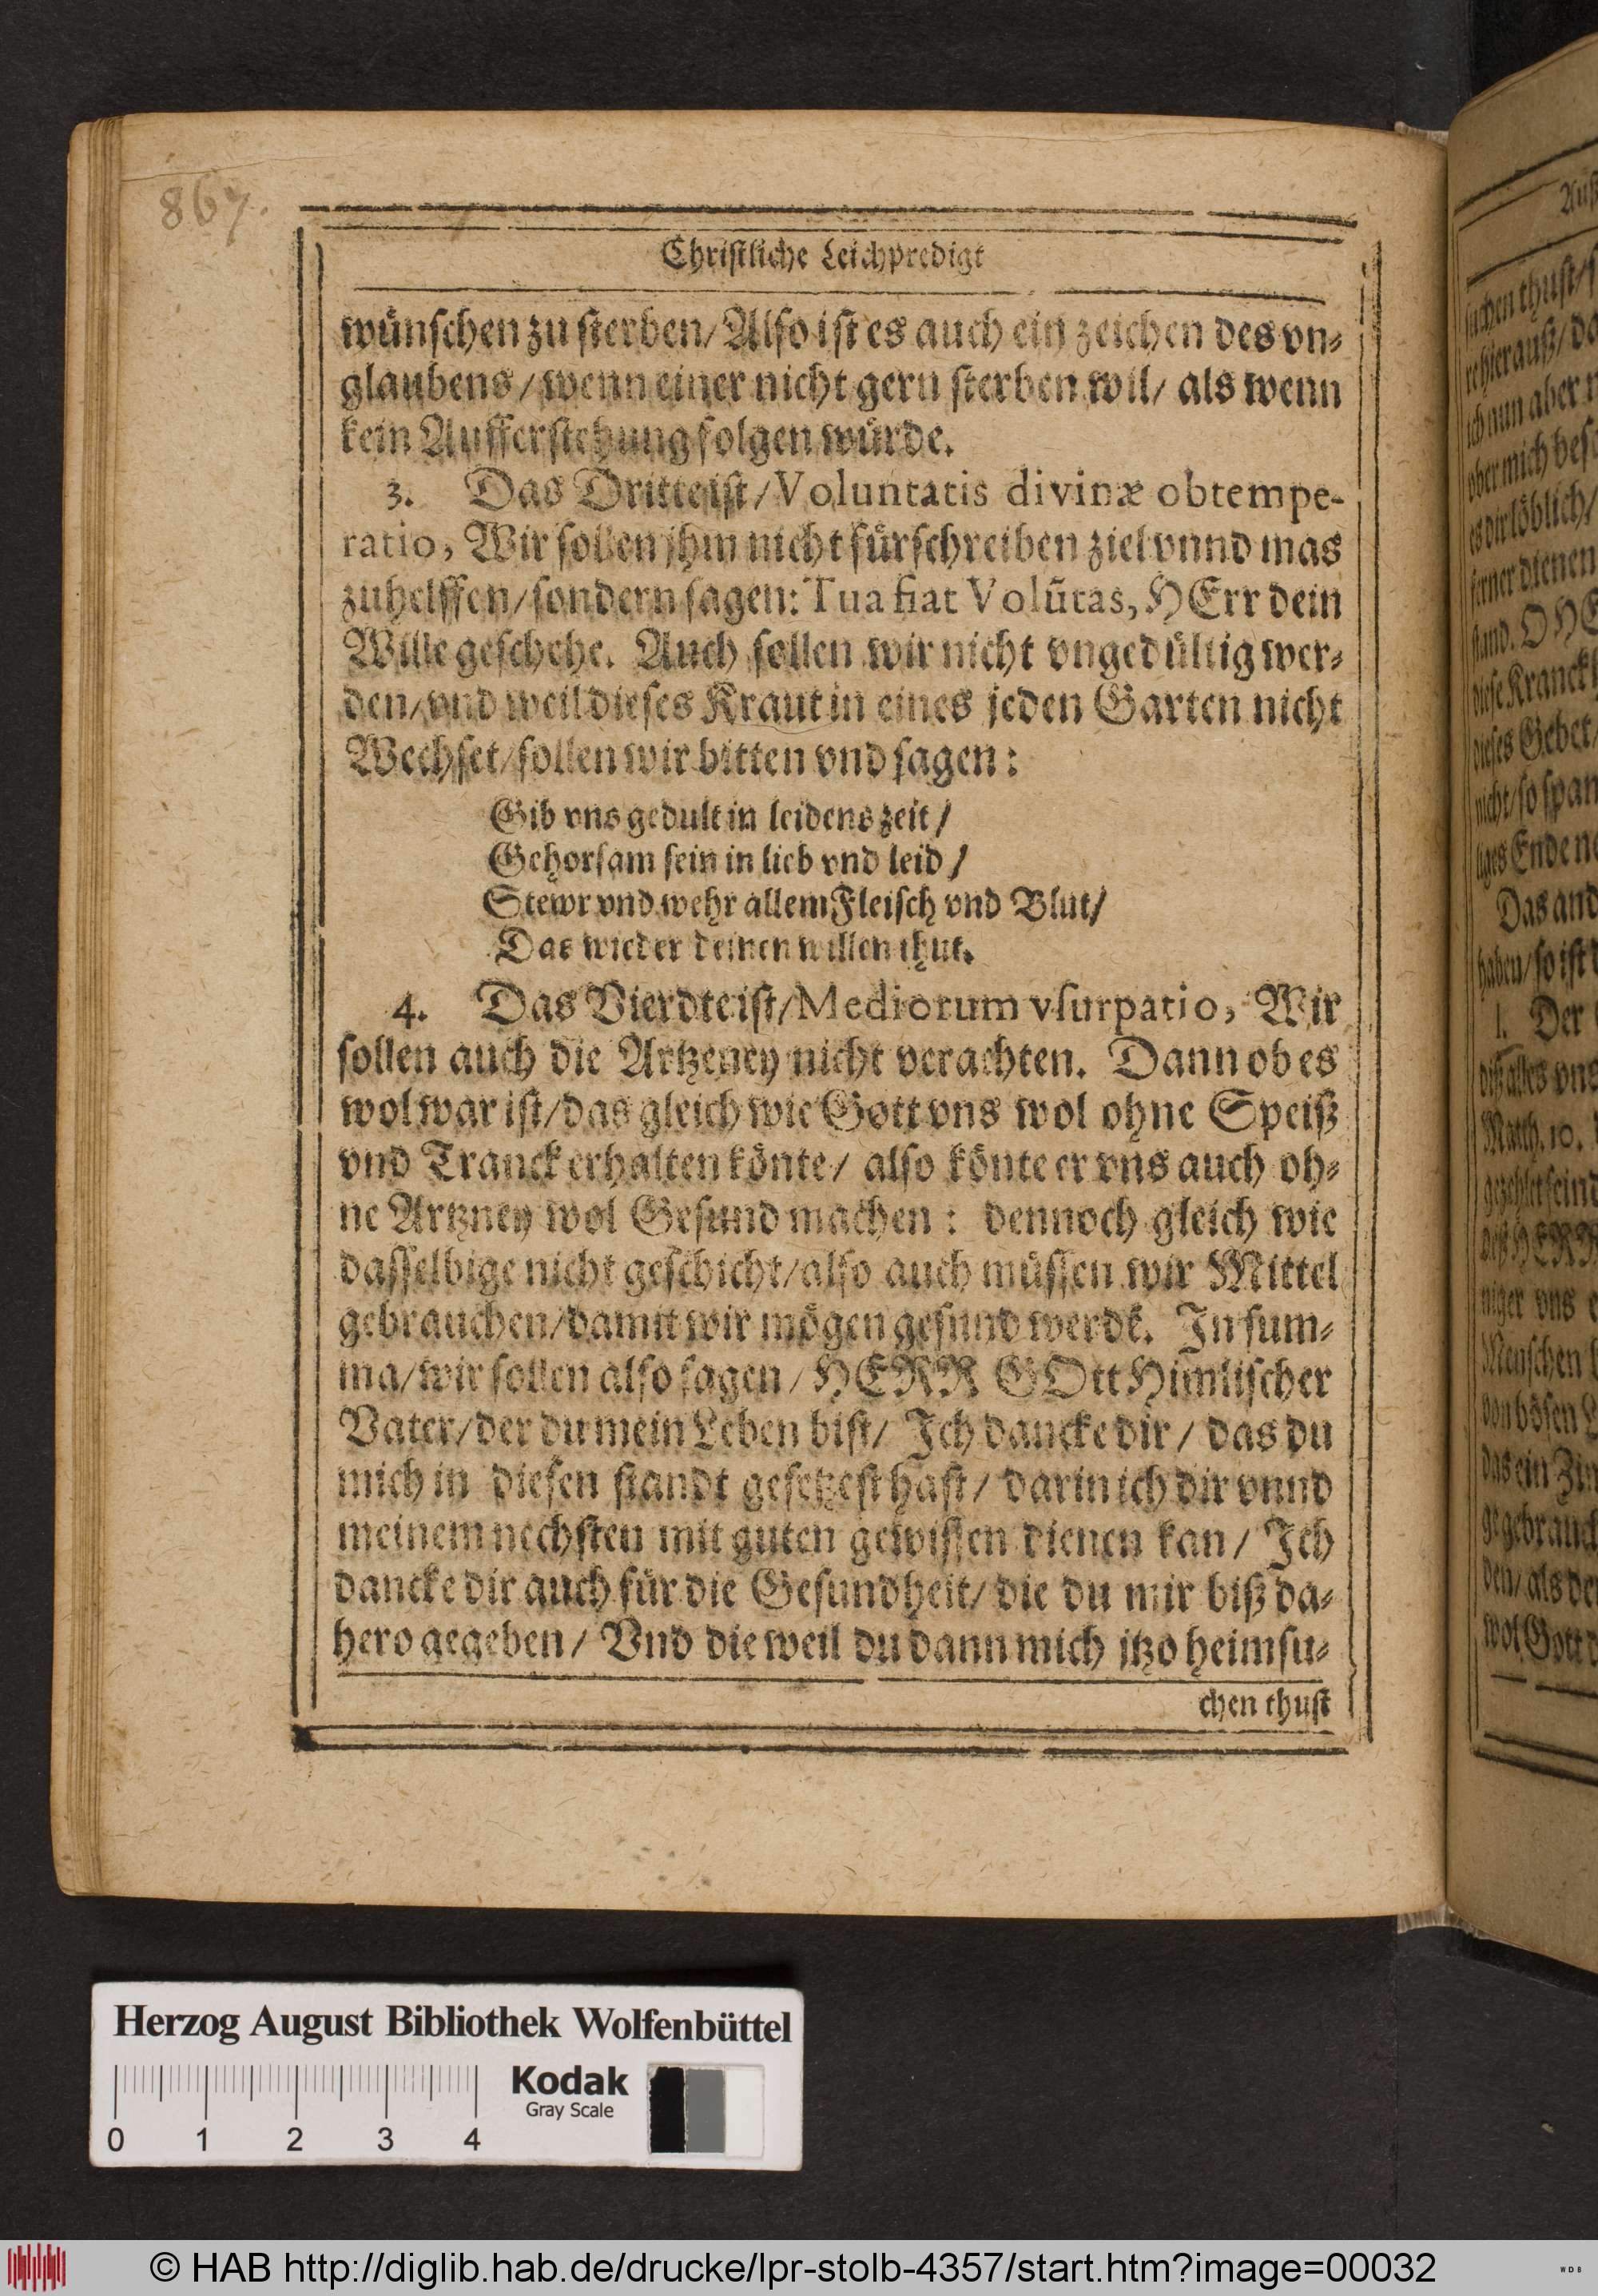 867.
Christliche Leichpredigt
wünschen zu sterben/ Also ist es auch ein zeichen des vn-
glaubens/ wenn einer nicht gern sterben wil/ als wenn
kein Aufferstehung folgen würde.
3. Das Dritte ist/ Voluntatis divinæ obtempe-
ratio, Wir sollen jhm nicht fürschreiben ziel vnnd mas
zuhelffen/ sondern sagen: Tua fiat Volũtas, HErr dein
Wille geschehe. Auch sollen wir nicht vngedültig wer-
den/ vnd weil dieses Kraut in eines jeden Garten nicht
Wechset/ sollen wir bitten vnd sagen:
Gib vns gedult in leidens zeit/
Gehorsam sein in lieb vnd leid/
Stewr vnd wehr allem Fleisch vnd Blut/
Das wieder deinen willen thut.
4. Das Vierdte ist/ Mediorum vsurpatio, Wir
sollen auch die Artzeney nicht verachten. Dann ob es
wol war ist/ das gleich wie Gott vns wol ohne Speiß
vnd Tranck erhalten könte/ also könte er vns auch oh-
ne Artzney wol Gesund machen: dennoch gleich wie
dasselbige nicht geschicht/ also auch müssen wir Mittel
gebrauchen/ damit wir mögen gesund werdẽ. In sum-
ma/ wir sollen also sagen/ HERR GOtt Himlischer
Vater/ der du mein Leben bist/ Ich dancke dir/ das du
mich in diesen standt gesetzest hast/ darin ich dir vnnd
meinem nechsten mit guten gewissen dienen kan/ Ich
dancke dir auch für die Gesundheit/ die du mir biß da-
hero gegeben/ Vnd die weil du dann mich jtzo heimsu-
chen thust
Herzog August Bibliothek Wolfenbüttel
Kodak
Gray Scale
0 1 2 3 4
© HAB http://diglib.hab.de/drucke/lpr-stolb-4357/start.htm?image=00032
WDB